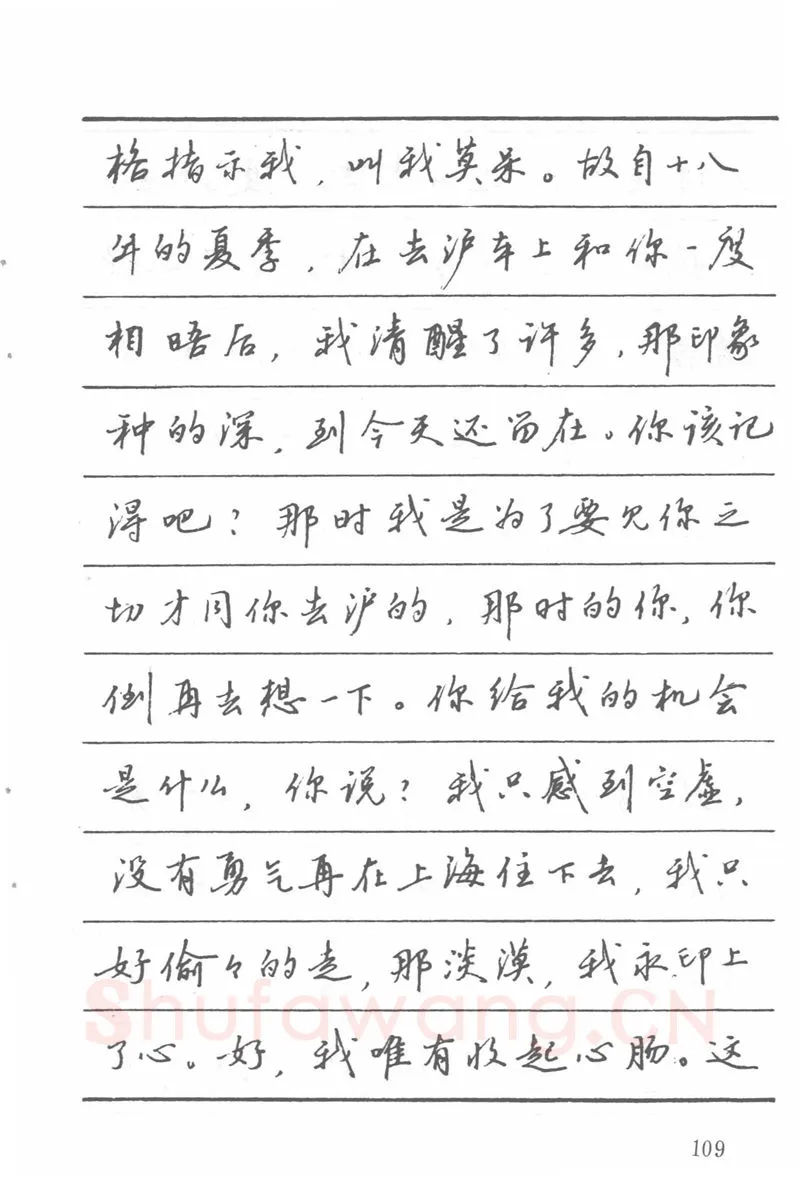 格指示我，叫我莫呆。故自十八
年的夏季，在去沪车上和你一度
相晤后，我清醒了许多，那印象
种的深，到今天还留在。你该记
得吧？那时我是为了要见你之
切才同你去沪的，那时的你，你
倒再去想一下。你给我的机会
是什么，你说？我只感到空虚，
没有勇气再在上海住下去，我只
好偷々的走，那淡漠，我永印上
了心。好，我唯有收起心肠。这
Shufawang.CN
109